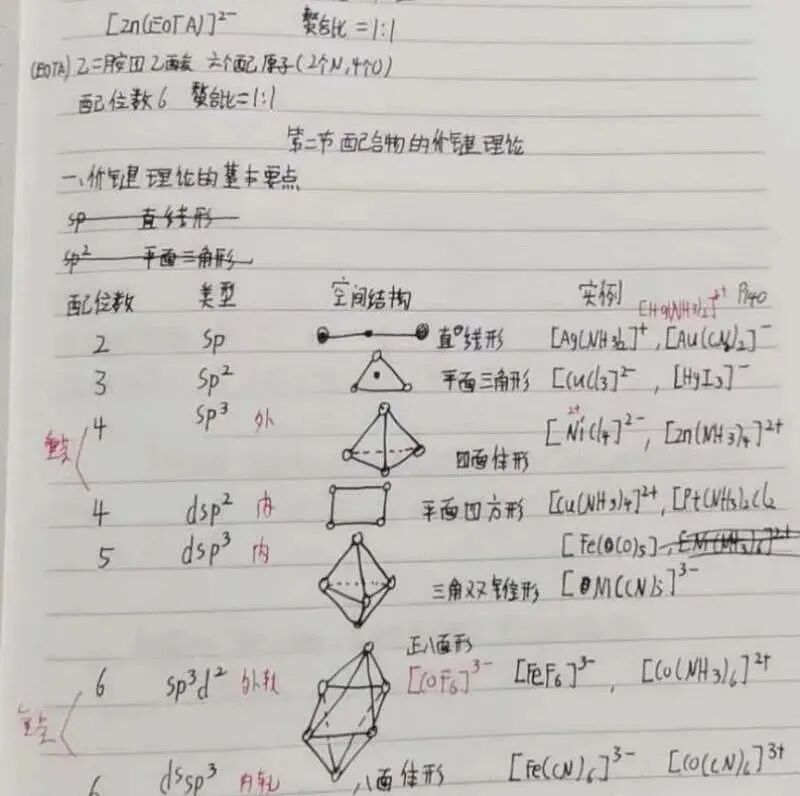 [Zn(EDTA)]²⁻ 螯合比=1:1
(EDTA) 乙二胺四乙酸 六个配原子(2个N,4个O)
配位数6 螯合比=1:1
第二节 配合物的价键理论
一、价键理论的基本要点
sp 直线形
sp² 平面三角形
配位数 类型 空间结构 实例 [Hg(NH3)2]²⁺ P140
2 sp 直线形 [Ag(NH3)2]⁺, [Au(CN)2]⁻
3 sp² 平面三角形 [CuCl3]²⁻, [HgI3]⁻
4 sp³ 外 四面体形 [NiCl4]²⁻, [Zn(NH3)4]²⁺
2+
4 dsp² 内 平面四方形 [Cu(NH3)4]²⁺, [Pt(NH3)2Cl2
5 dsp³ 内 [Fe(CO)5],
三角双锥形 (CN)5]³⁻
正八面形
6 sp³d² 外轨 [CoF6]³⁻ [FeF6]³⁻, [Co(NH3)6]²⁺
6 内轨 八面体形 [Fe(CN)6]³⁻ [Co(CN)6]³⁺